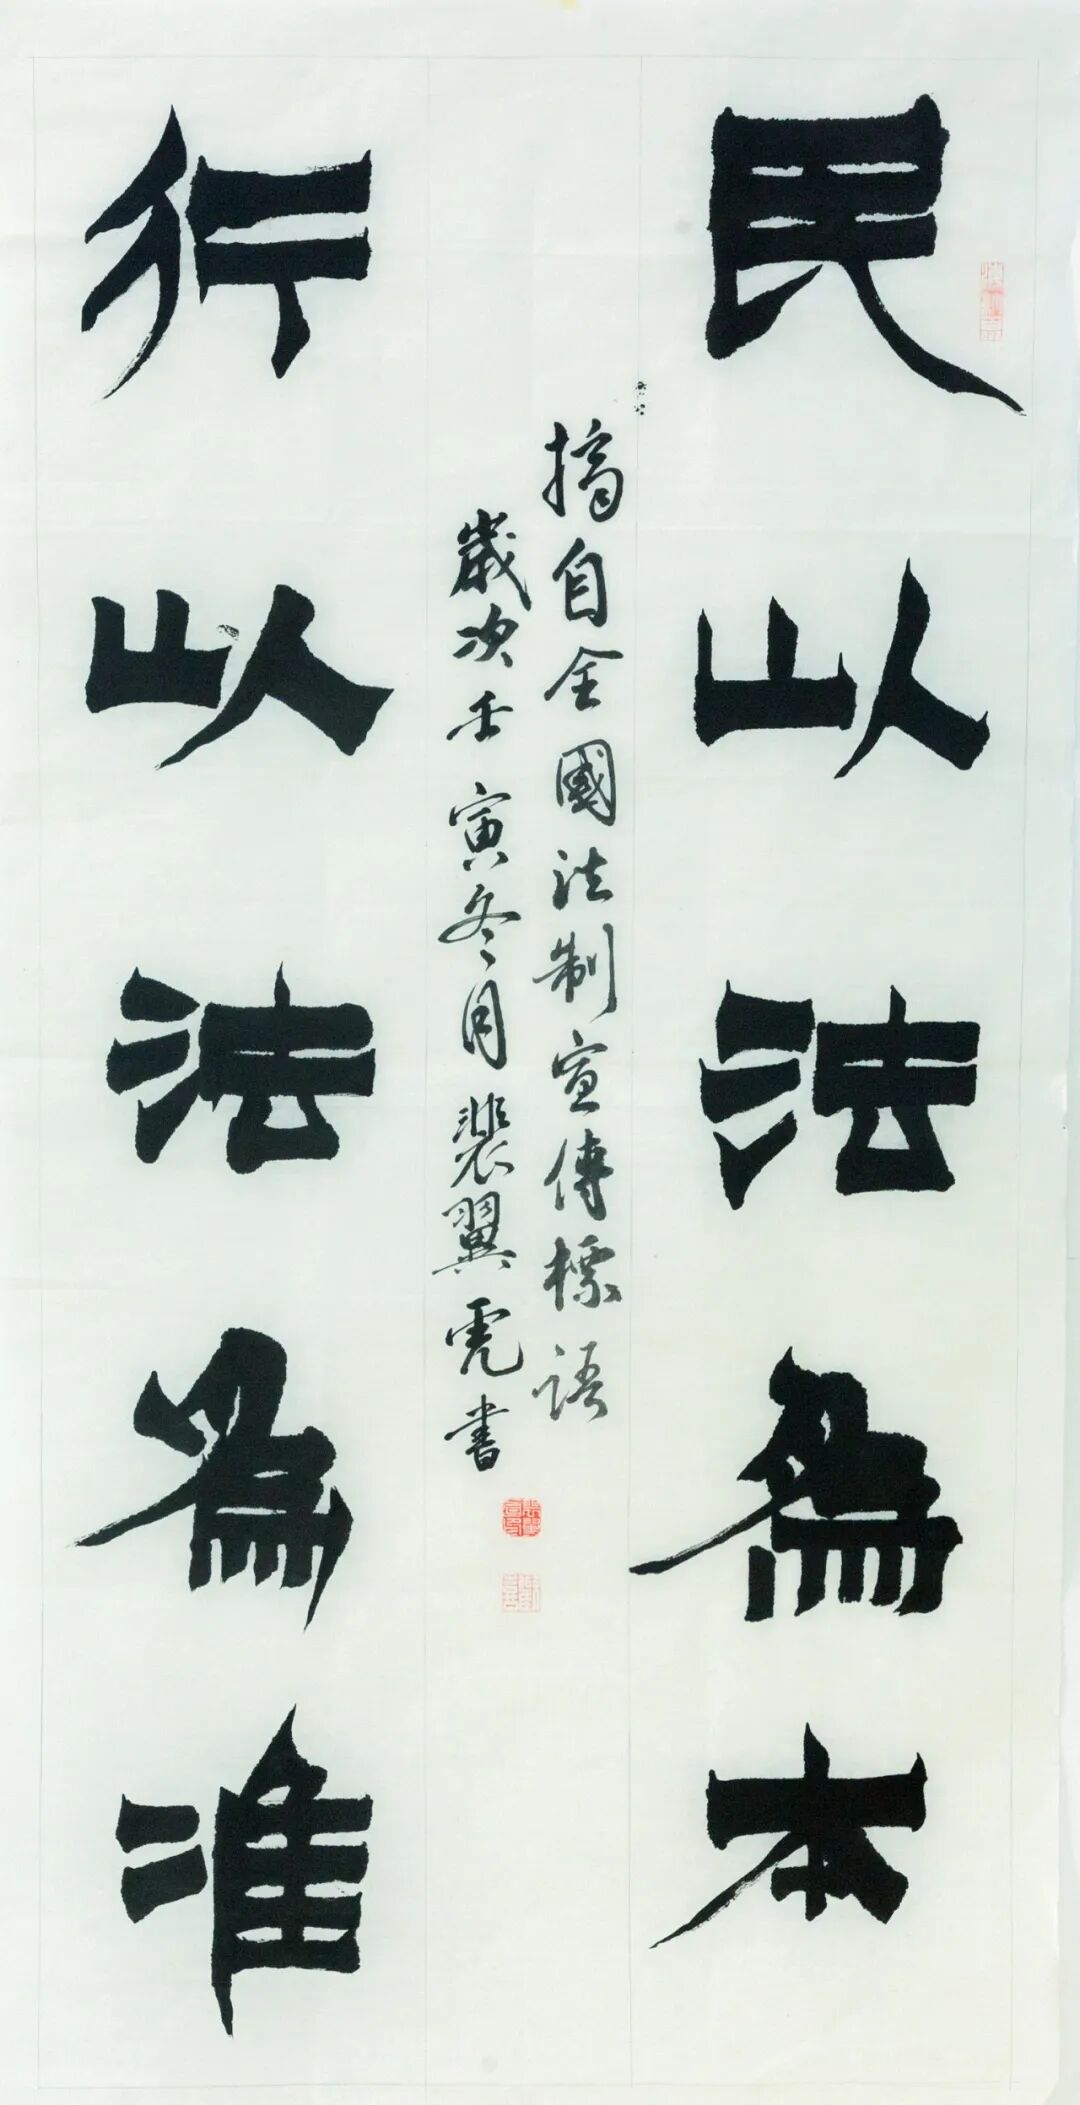 民以法為本
摘自全國法制宣傳標語
歲次壬寅冬月裴翼虎書
行以法為准